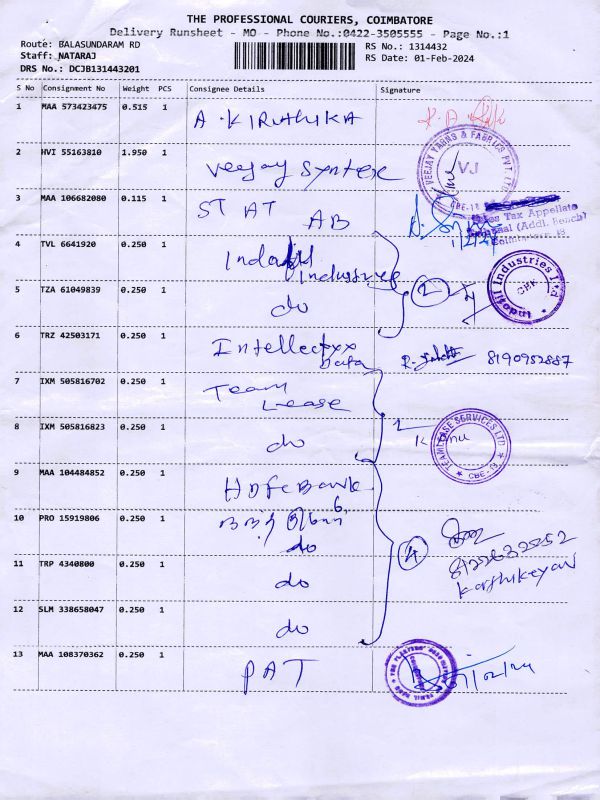 THE PROFESSIONAL COURIERS, COIMBATORE
Delivery Runsheet - MO -- Phone No.:0422-3505555 - Page No.:1
Route: BALASUNDARAM RD RS No.: 1314432
Staff: NATARAJ RS Date: 01-Feb-2024
DRS No.: DCJB131443201
S No Consignment No Weight PCS Consignee Details Signature
1 MAA 573423475 0.515 1 A.KIRUTHIKA
2 HVI 55163810 1.950 1 Veejay Syntex
VEEJAY YARNS & FABRICS PVT. LTD. VJ CBE-18
3 MAA 106682080 0.115 1 STAT AB
Sales Tax Appellate
(Addl. Bench)
Coimbatore-18
4 TVL 6641920 0.250 1 Indofil
Industries
2
Indofil Industries Ltd CBK
5 TZA 61049839 0.250 1 do
6 TRZ 42503171 0.250 1 Intellectxx
Data 8190952887
7 IXM 505816702 0.250 1 Team
Lease
8 IXM 505816823 0.250 1 do
TEAMLEASE SERVICES LTD CBE-18
9 MAA 104484852 0.250 1 HDFC Bank
10 PRO 15919806 0.250 1 do
4
8122632252
Karthikeyan
11 TRP 4340800 0.250 1 do
12 SLM 338658047 0.250 1 do
13 MAA 108370362 0.250 1 PAT